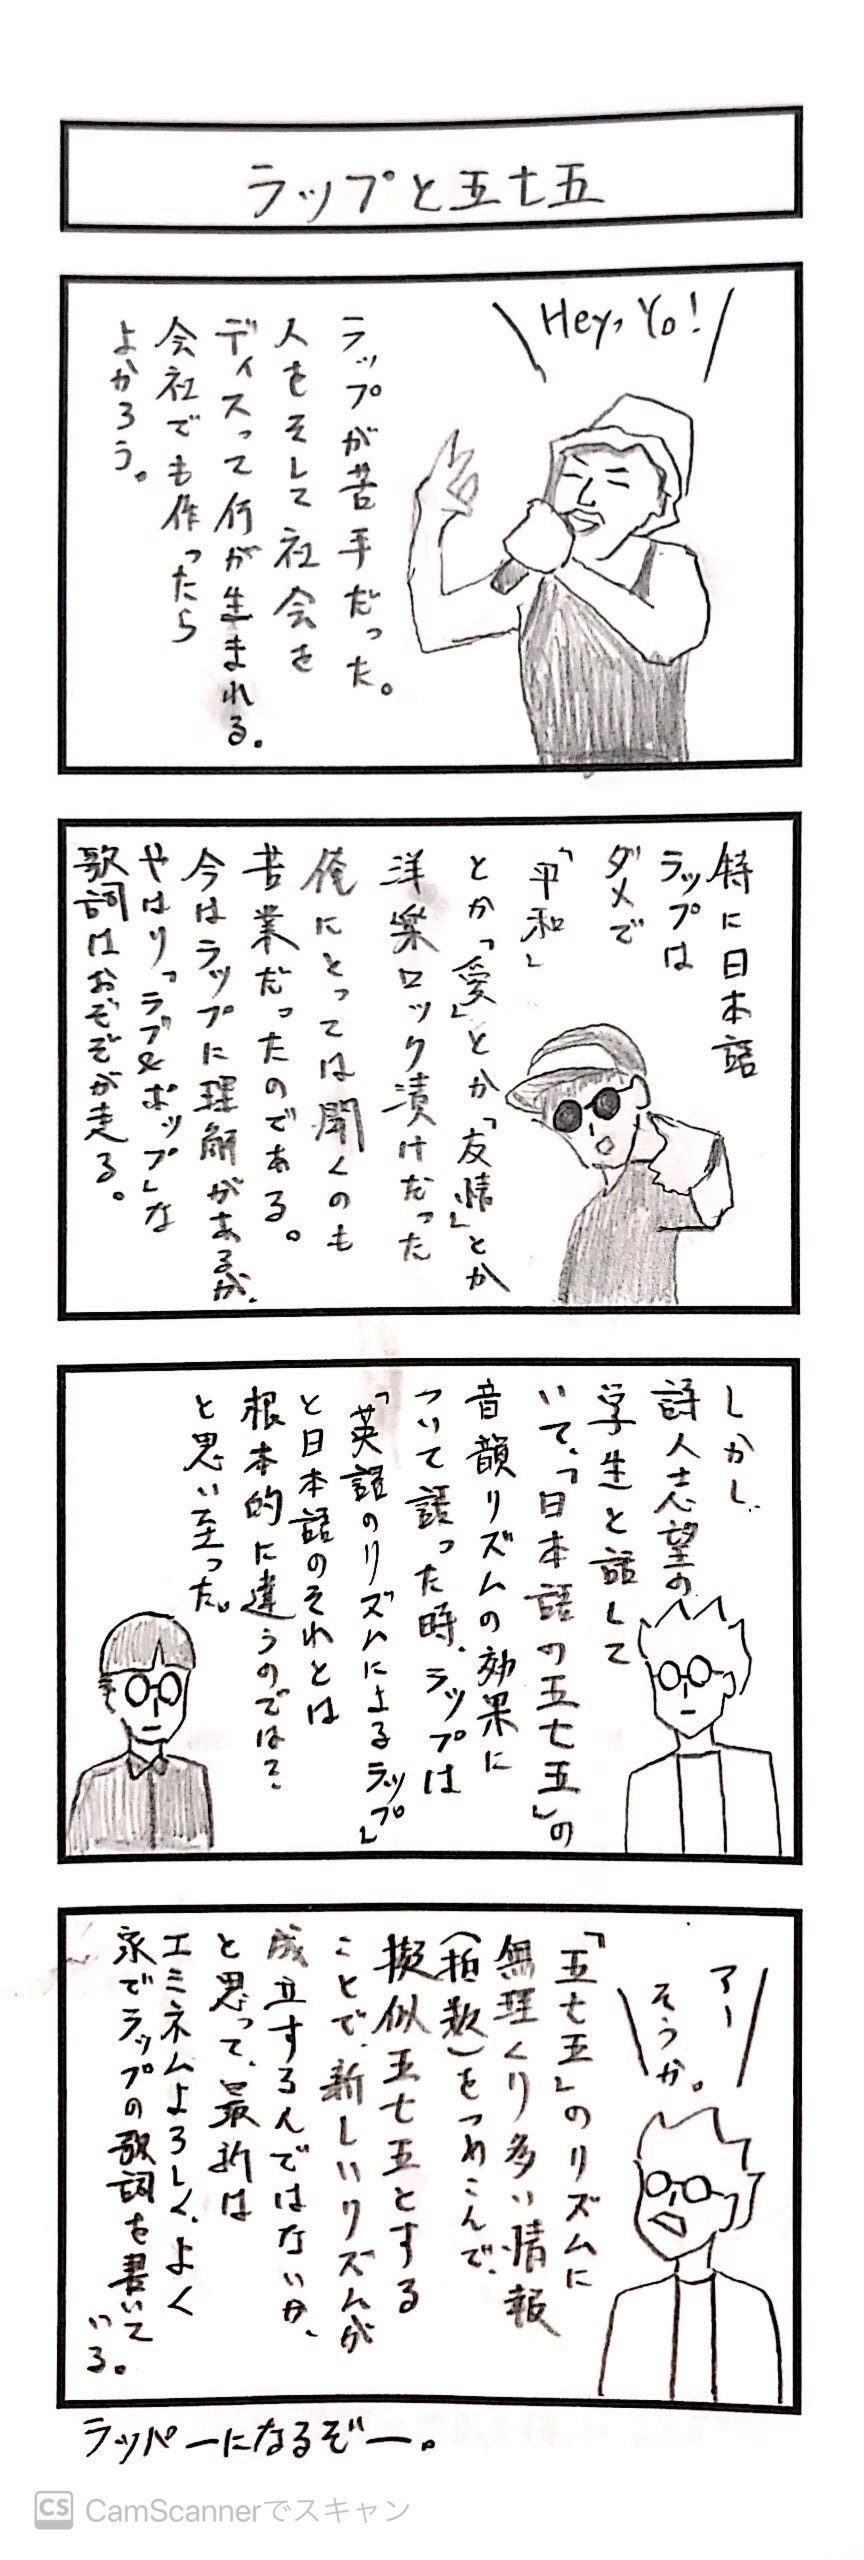 ラップと五七五
Hey, Yo!
ラップが苦手だった。
人をそして社会を
ディスって何が生まれる。
会社でも作ったら
よかろう。
特に日本語
ラップは
ダメで
「平和」
とか「愛」とか「友情」とか
洋楽ロック漬けだった
俺にとっては聞くのも
苦業だったのである。
今はラップに理解があるが、
やはり「ラブ&ポップ」な
歌詞はおぞぞが走る。
しかし、
詩人志望の
学生と話して
いて、「日本語の五七五」の
音韻リズムの効果に
ついて語った時、ラップは
「英語のリズムによるラップ」
と日本語のそれとは
根本的に違うのでは?
と思い至った。
アー
そうか。
「五七五」のリズムに
無理くり多い情報
(拍数)をつめこんで、
擬似五七五とする
ことで、新しいリズムが
成立するんではないか、
と思って、最近は
エミネムよろしく、よく
家でラップの歌詞を書いて
いる。
ラッパーになるぞー。
CS CamScannerでスキャン